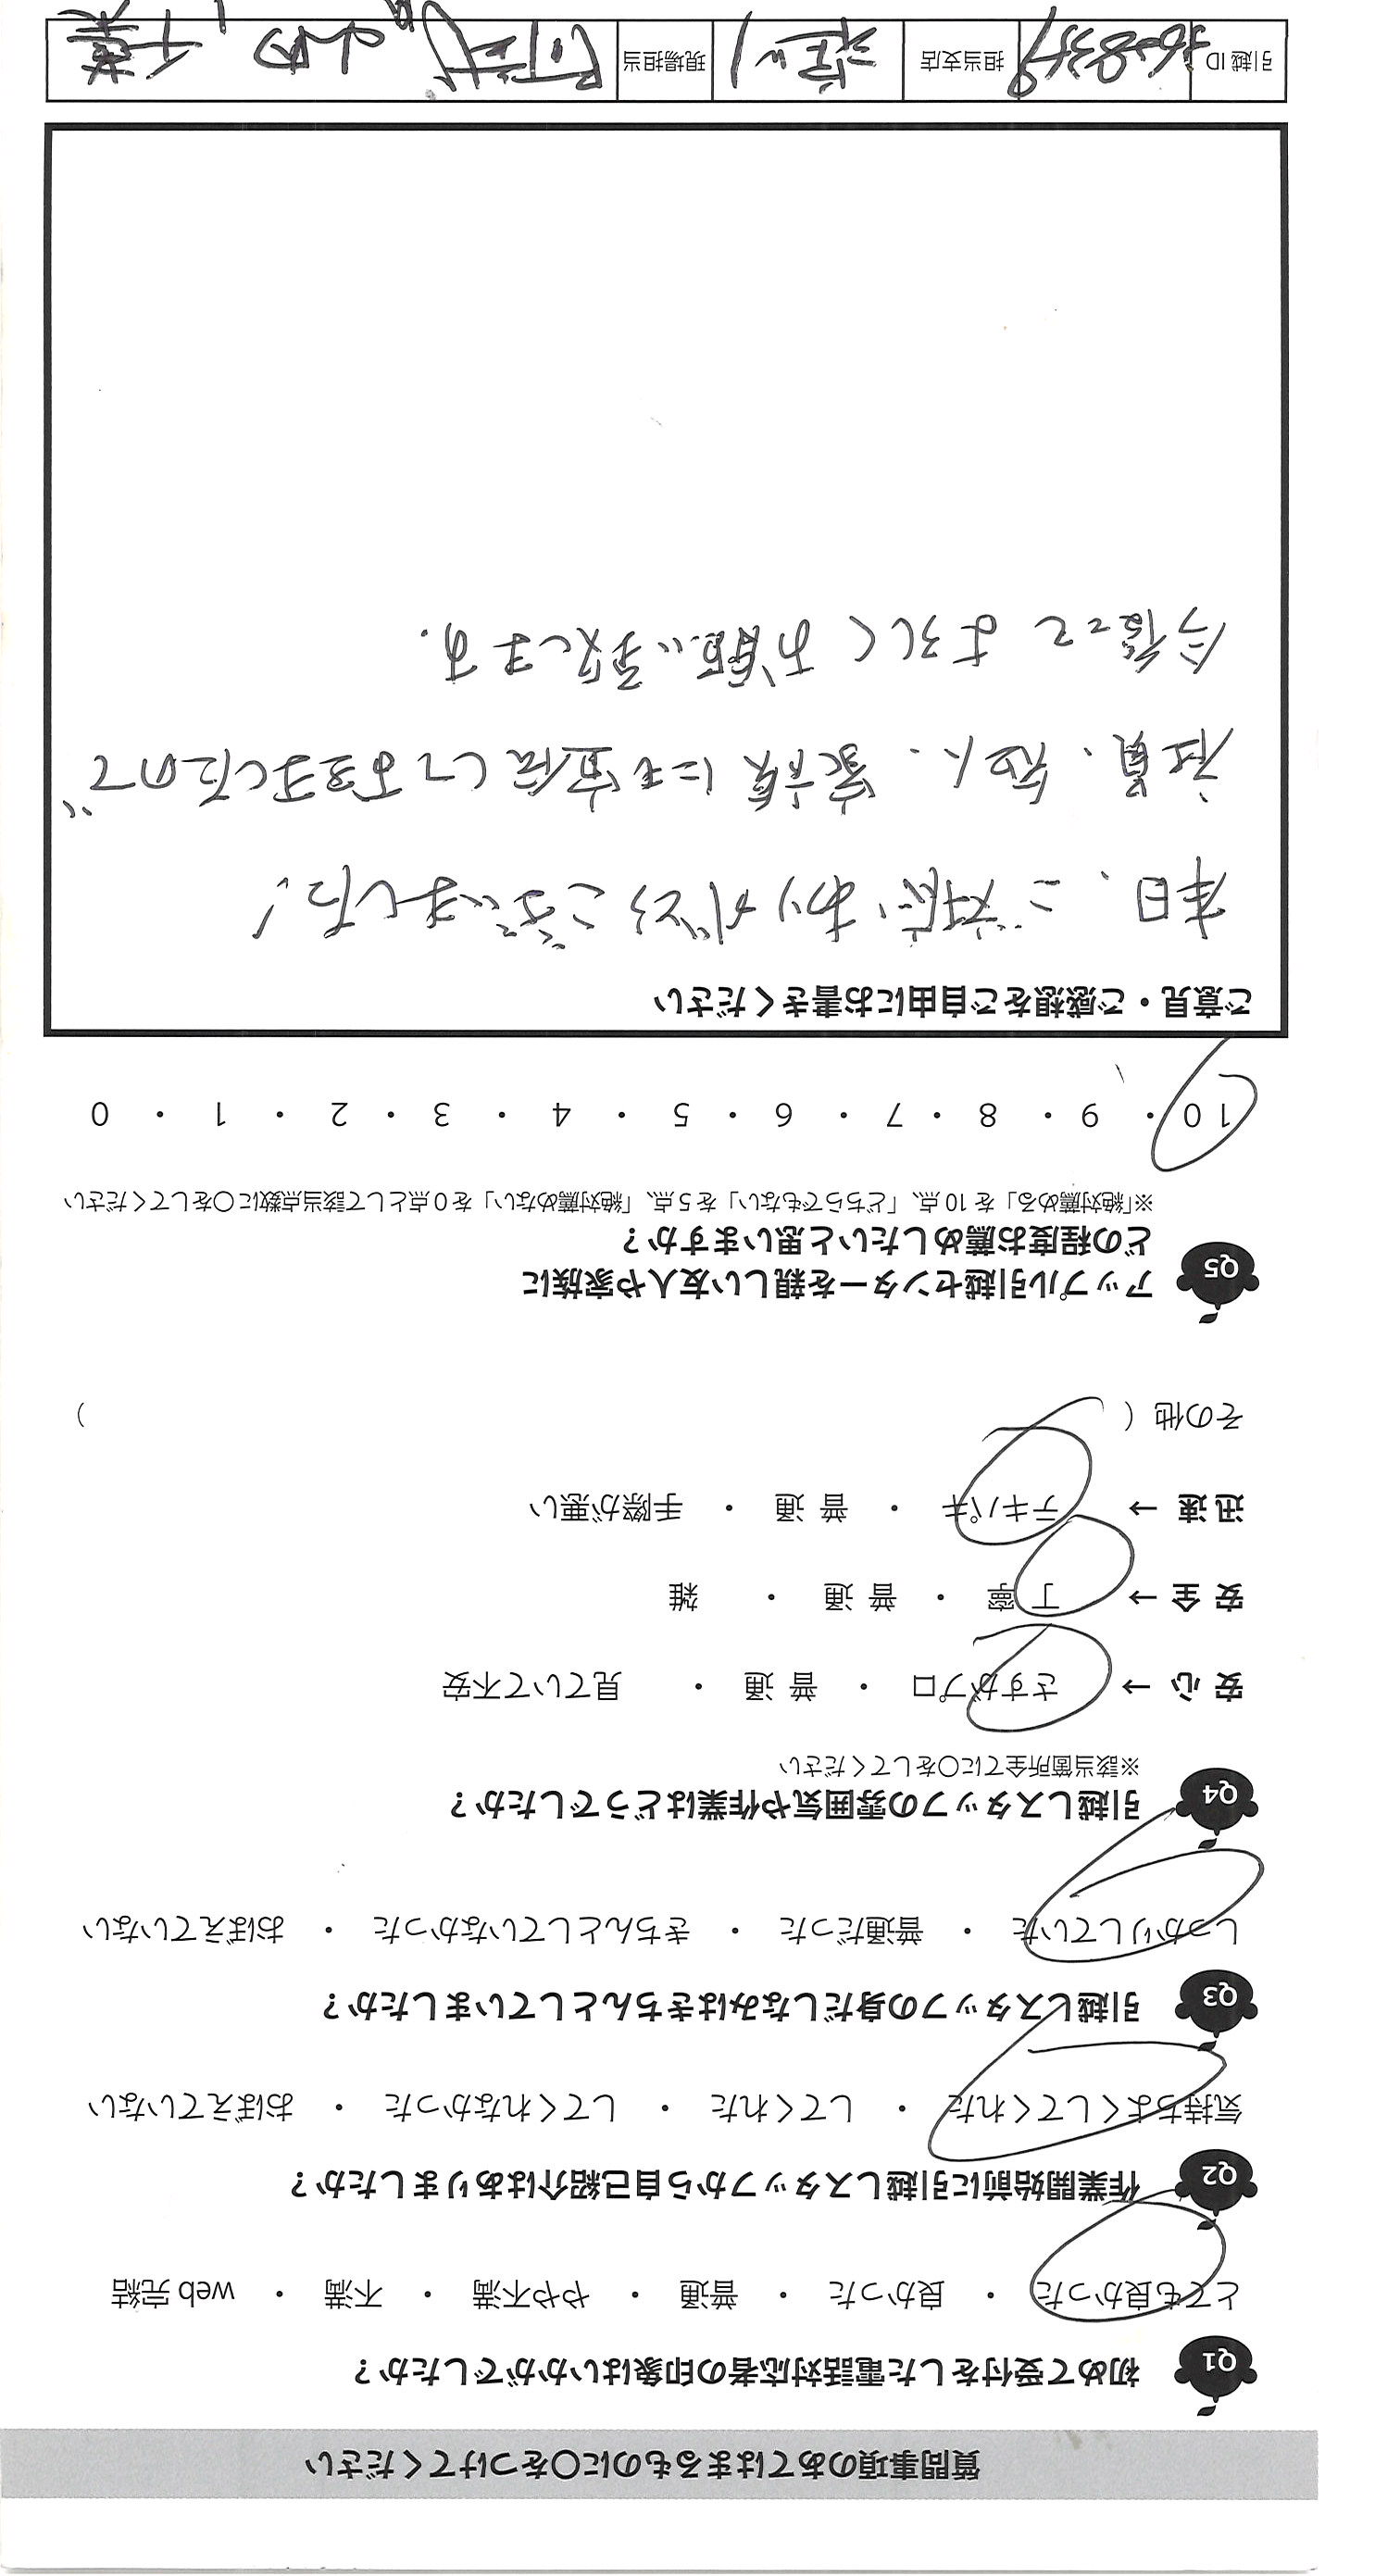 質問事項のあてはまるものに〇をつけてください
Q1 初めて受付をした電話対応者の印象はいかがでしたか？
とても良かった ・ 良かった ・ 普通 ・ やや不満 ・ 不満 ・ web 完結
Q2 作業開始前に引越しスタッフから自己紹介はありましたか？
気持ちよくしてくれた ・ してくれた ・ してくれなかった ・ おぼえていない
Q3 引越しスタッフの身だしなみはきちんとしていましたか？
しっかりしていた ・ 普通だった ・ きちんとしていなかった ・ おぼえていない
Q4 引越しスタッフの雰囲気や作業はどうでしたか？
※該当箇所全てに〇をしてください
安 心 → さすがプロ ・ 普 通 ・ 見ていて不安
安 全 → 丁 寧 ・ 普 通 ・ 雑
迅 速 → テキパキ ・ 普 通 ・ 手際が悪い
その他（ ）
Q5 アップル引越センターを親しい友人や家族に
どの程度お薦めしたいと思いますか？
※「絶対薦める」を 10 点、「どちらでもない」を 5 点、「絶対薦めない」を 0 点として該当点数に〇をしてください
10 ・ 9 ・ 8 ・ 7 ・ 6 ・ 5 ・ 4 ・ 3 ・ 2 ・ 1 ・ 0
ご意見・ご感想をご自由にお書きください
本日、ご対応ありがとうございました!
社員、知人、家族にも宣伝しておきましたので
今後とも よろしく お願い致します.
引越 ID 担当支店 現場担当 千葉